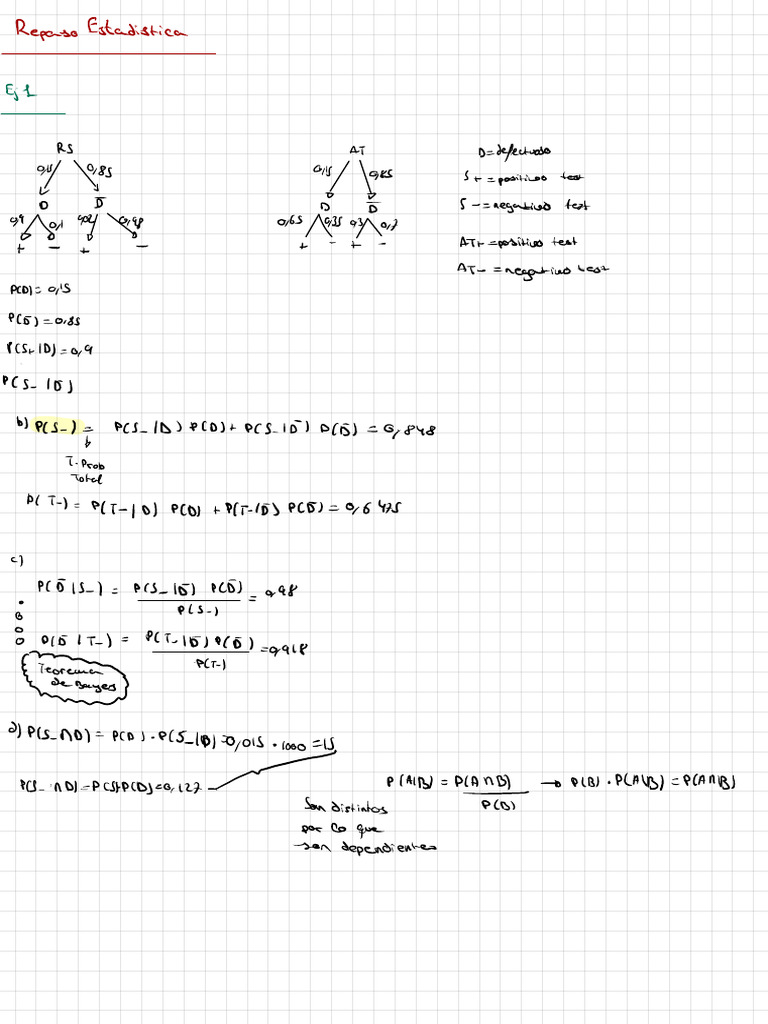 Repaso Estadistica
Ej 1
RS
0,15 0,85
D D̅
0,9 0,1 0,02 0,98
+ - + -
AT
0,15 0,85
D D̅
0,65 0,35 0,3 0,7
+ - + -
D = defectuoso
S+ = positivo test
S- = negativo test
AT+ = positivo test
AT- = negativo test
P(D) = 0,15
P(D̅) = 0,85
P(S+|D) = 0,9
P(S_|D̅)
b) P(S_) = P(S_|D) P(D) + P(S_|D̅) P(D̅) = 0,848
T. Prob
Total
P(T-) = P(T-|D) P(D) + P(T-|D̅) P(D̅) = 0,6475
c)
P(D̅|S_) = P(S_|D̅) P(D̅) / P(S_) = 0,98
P(D̅|T-) = P(T-|D̅) P(D̅) / P(T-) = 0,918
Teorema
de Bayes
d) P(S_∩D) = P(D) · P(S_|D) = 0,015 · 1000 = 15
P(S_∩D) = P(S)P(D) = 0,127
P(A|B) = P(A∩B) / P(B) → P(B) · P(A|B) = P(A∩B)
Son distintos
por lo que
son dependientes